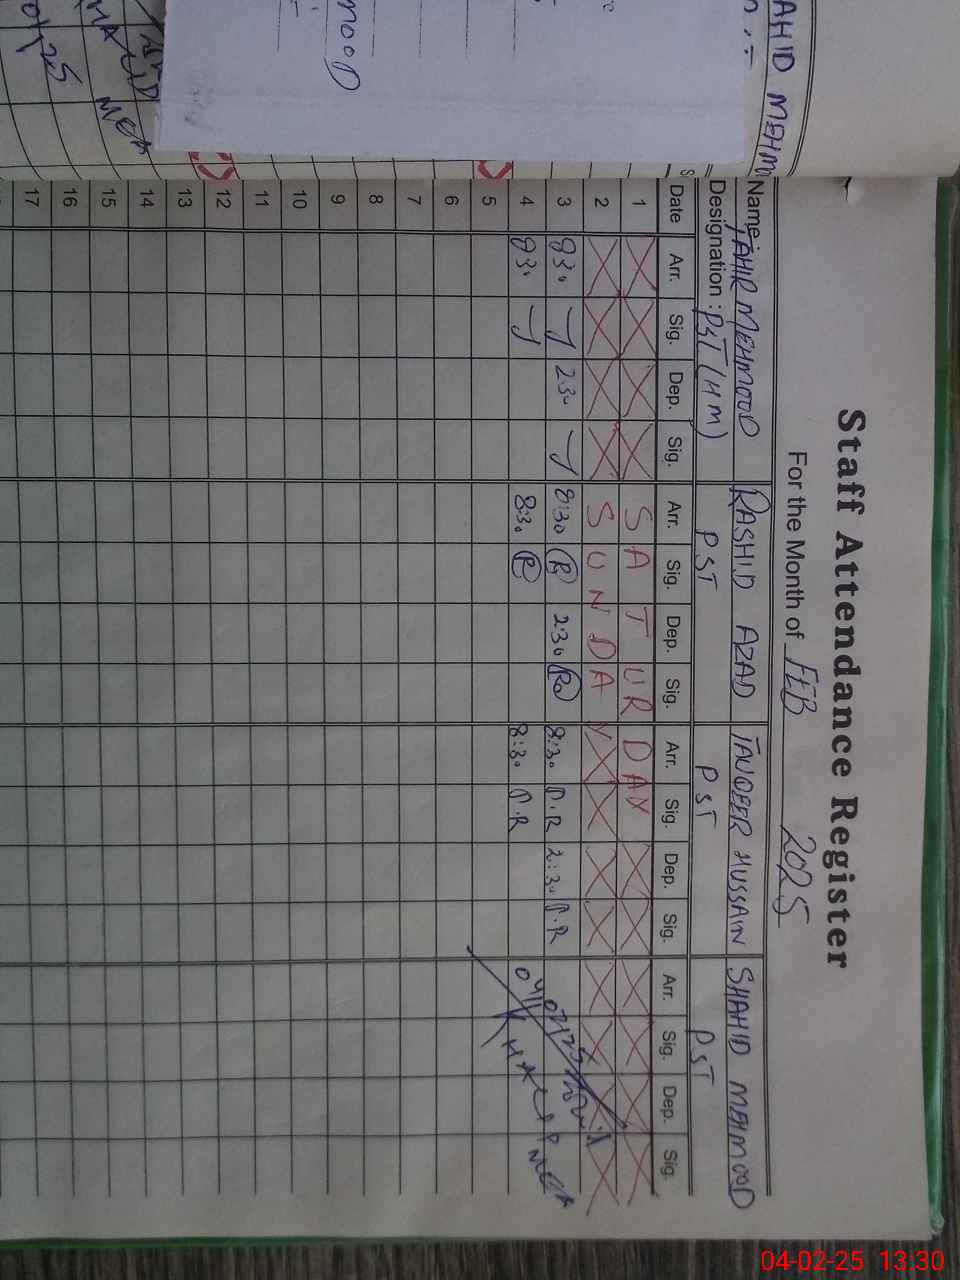 Staff Attendance Register
For the Month of FEB 2025
Name: TAHIR MEHMOOD RASHID AZAD TANVEER HUSSAIN SHAHID MEHMOOD
Designation: PST (HM) PST PST PST
Date Arr. Sig. Dep. Sig. Arr. Sig. Dep. Sig. Arr. Sig. Dep. Sig. Arr. Sig. Dep. Sig.
1 SATURDAY
2 SUNDAY
3 830 230 8:30 R 2:30 8:30 P.R 2:30 P.R
4 830 8:30 R 8:30 P.R
5
6
7
8
9
10
11
12
13
14
15
16
17
04/02/25
MEA
AHID MEHM
mooD
04-02-25 13.30